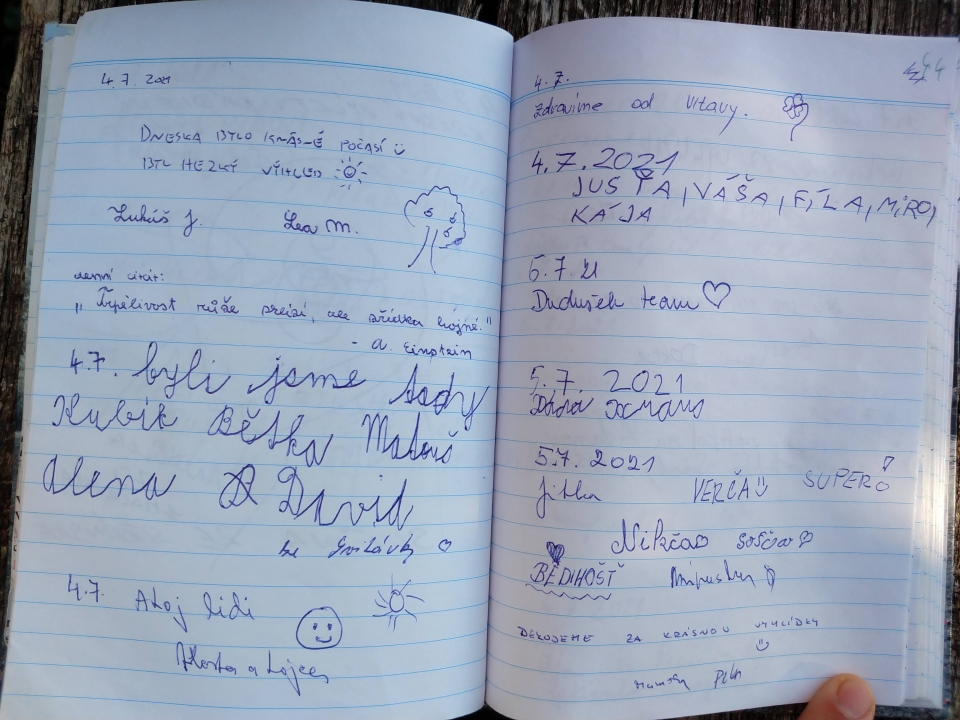 4. 7. 2021
DNESKA BYLO KRÁSNÉ POČASÍ
BYL HEZKÝ VÝHLED
Lukáš J. Lea M.
denní citát:
„Trpělivost růže přináší, ale zřídka hojně."
- A. Einstein
4.7. byli jsme tady
Kubík Bětka Matouš
Alena David
4.7. Ahoj lidi
a
4.7.
Zdravíme od Vltavy.
4.7.2021
JUSŤA, VÁŠA, FÍLA, MÍRO,
KÁJA
5.7.21
Dudušek team
5.7. 2021
5.7. 2021
Jitka VERČA SUPER!
Nikča
BĚDIHOŠŤ
DĚKUJEME ZA KRÁSNOU VYHLÍDKU